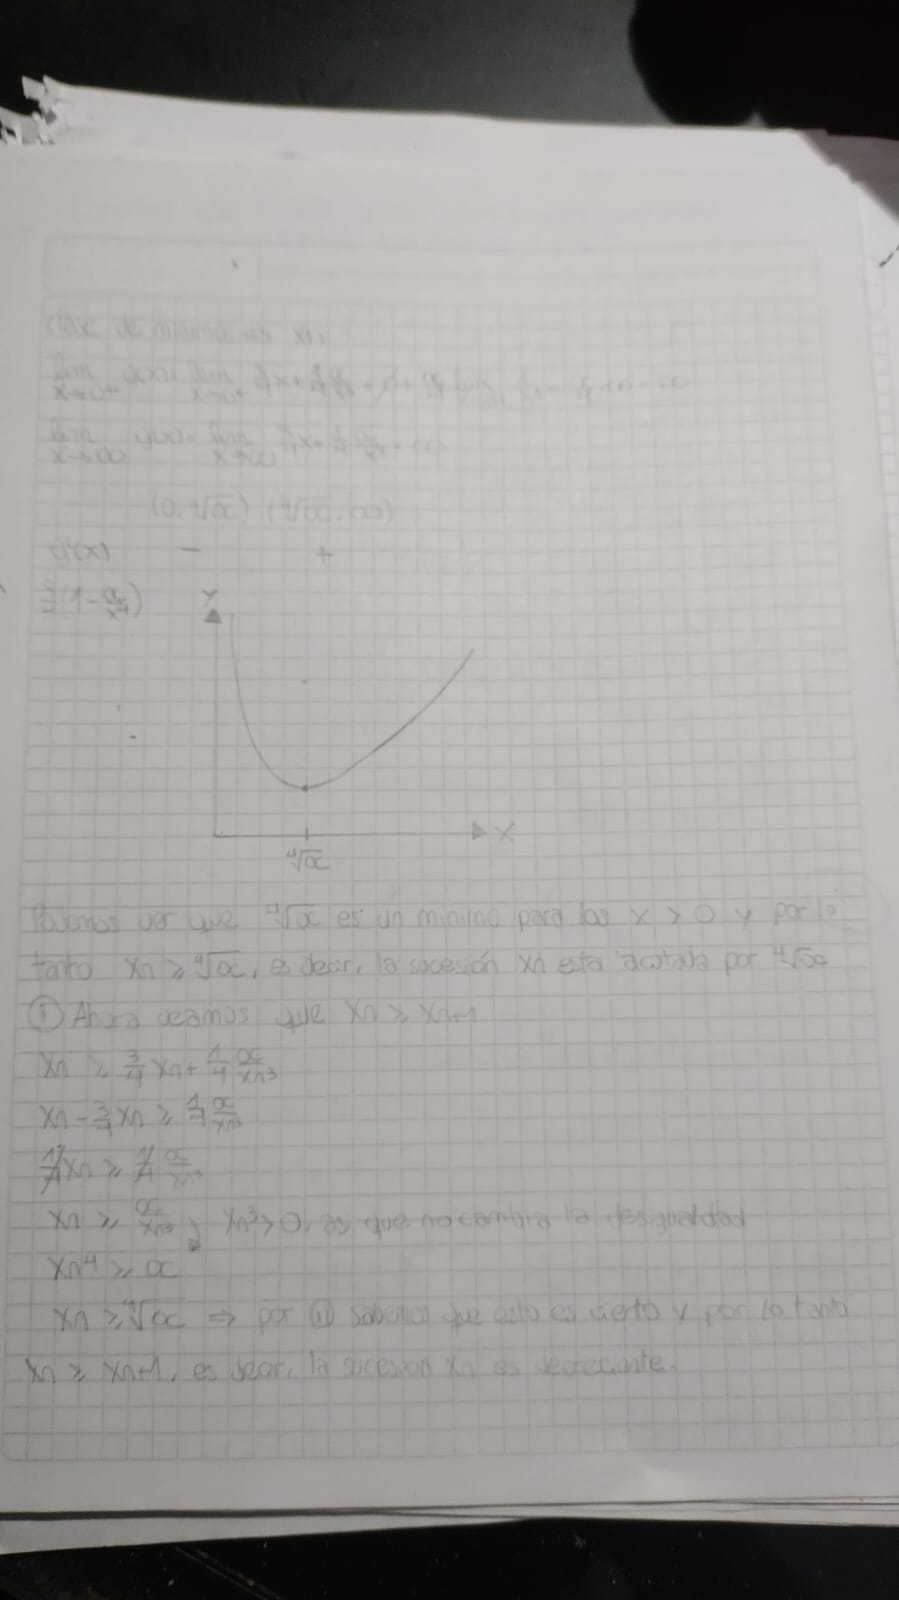 clase de minimo es x1,
lim g(x)= lim 3/4x+1/4 α/x³
x→0⁺ x→0⁺
lim g(x)= lim 3/4x+1/4 α/x³=∞
x→∞ x→∞
(0,⁴√α) (⁴√α,∞)
g'(x) - +
3/4(1-α/x⁴)
Y
X
⁴√α
Podemos ver que ⁴√α es un minimo para los x>0 y por lo
tanto xn ≥ ⁴√α, es decir, la sucesión xn esta acotada por ⁴√α
ⓘ Ahora veamos que xn ≥ xn+1
xn ≥ 3/4 xn + 1/4 α/xn³
xn - 3/4 xn ≥ 1/4 α/xn³
1/4 xn ≥ 1/4 α/xn³
xn ≥ α/xn³ ; xn³>0, as que no cambia la desigualdad
xn⁴ ≥ α
xn ≥ ⁴√α ⇒ por (ii) sabemos que esto es cierto y por lo tanto
xn ≥ xn+1, es decir, la sucesion xn es decreciente.